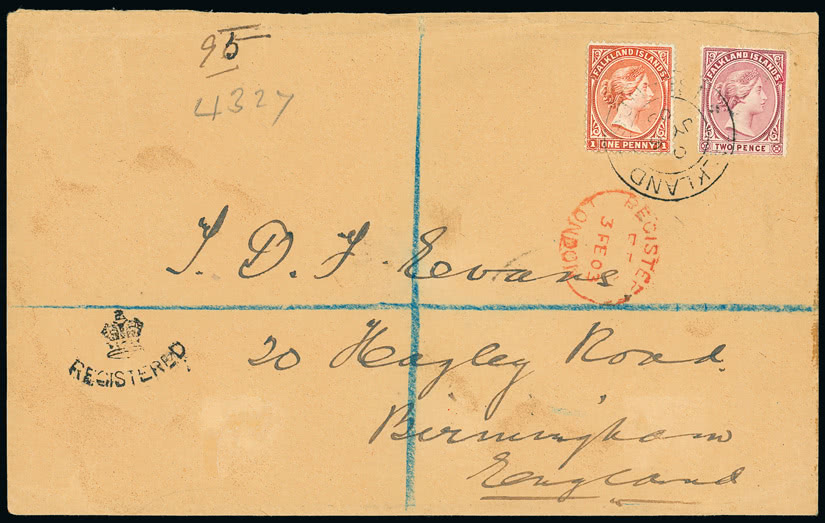 95
4327
FALKLAND ISLANDS
1 ONE PENNY 1
FALKLAND ISLANDS
TWO PENCE
REGISTERED
LONDON
3 FE 03
J. D. F. Evans
REGISTERED
20 Hagley Road
Birmingham
England